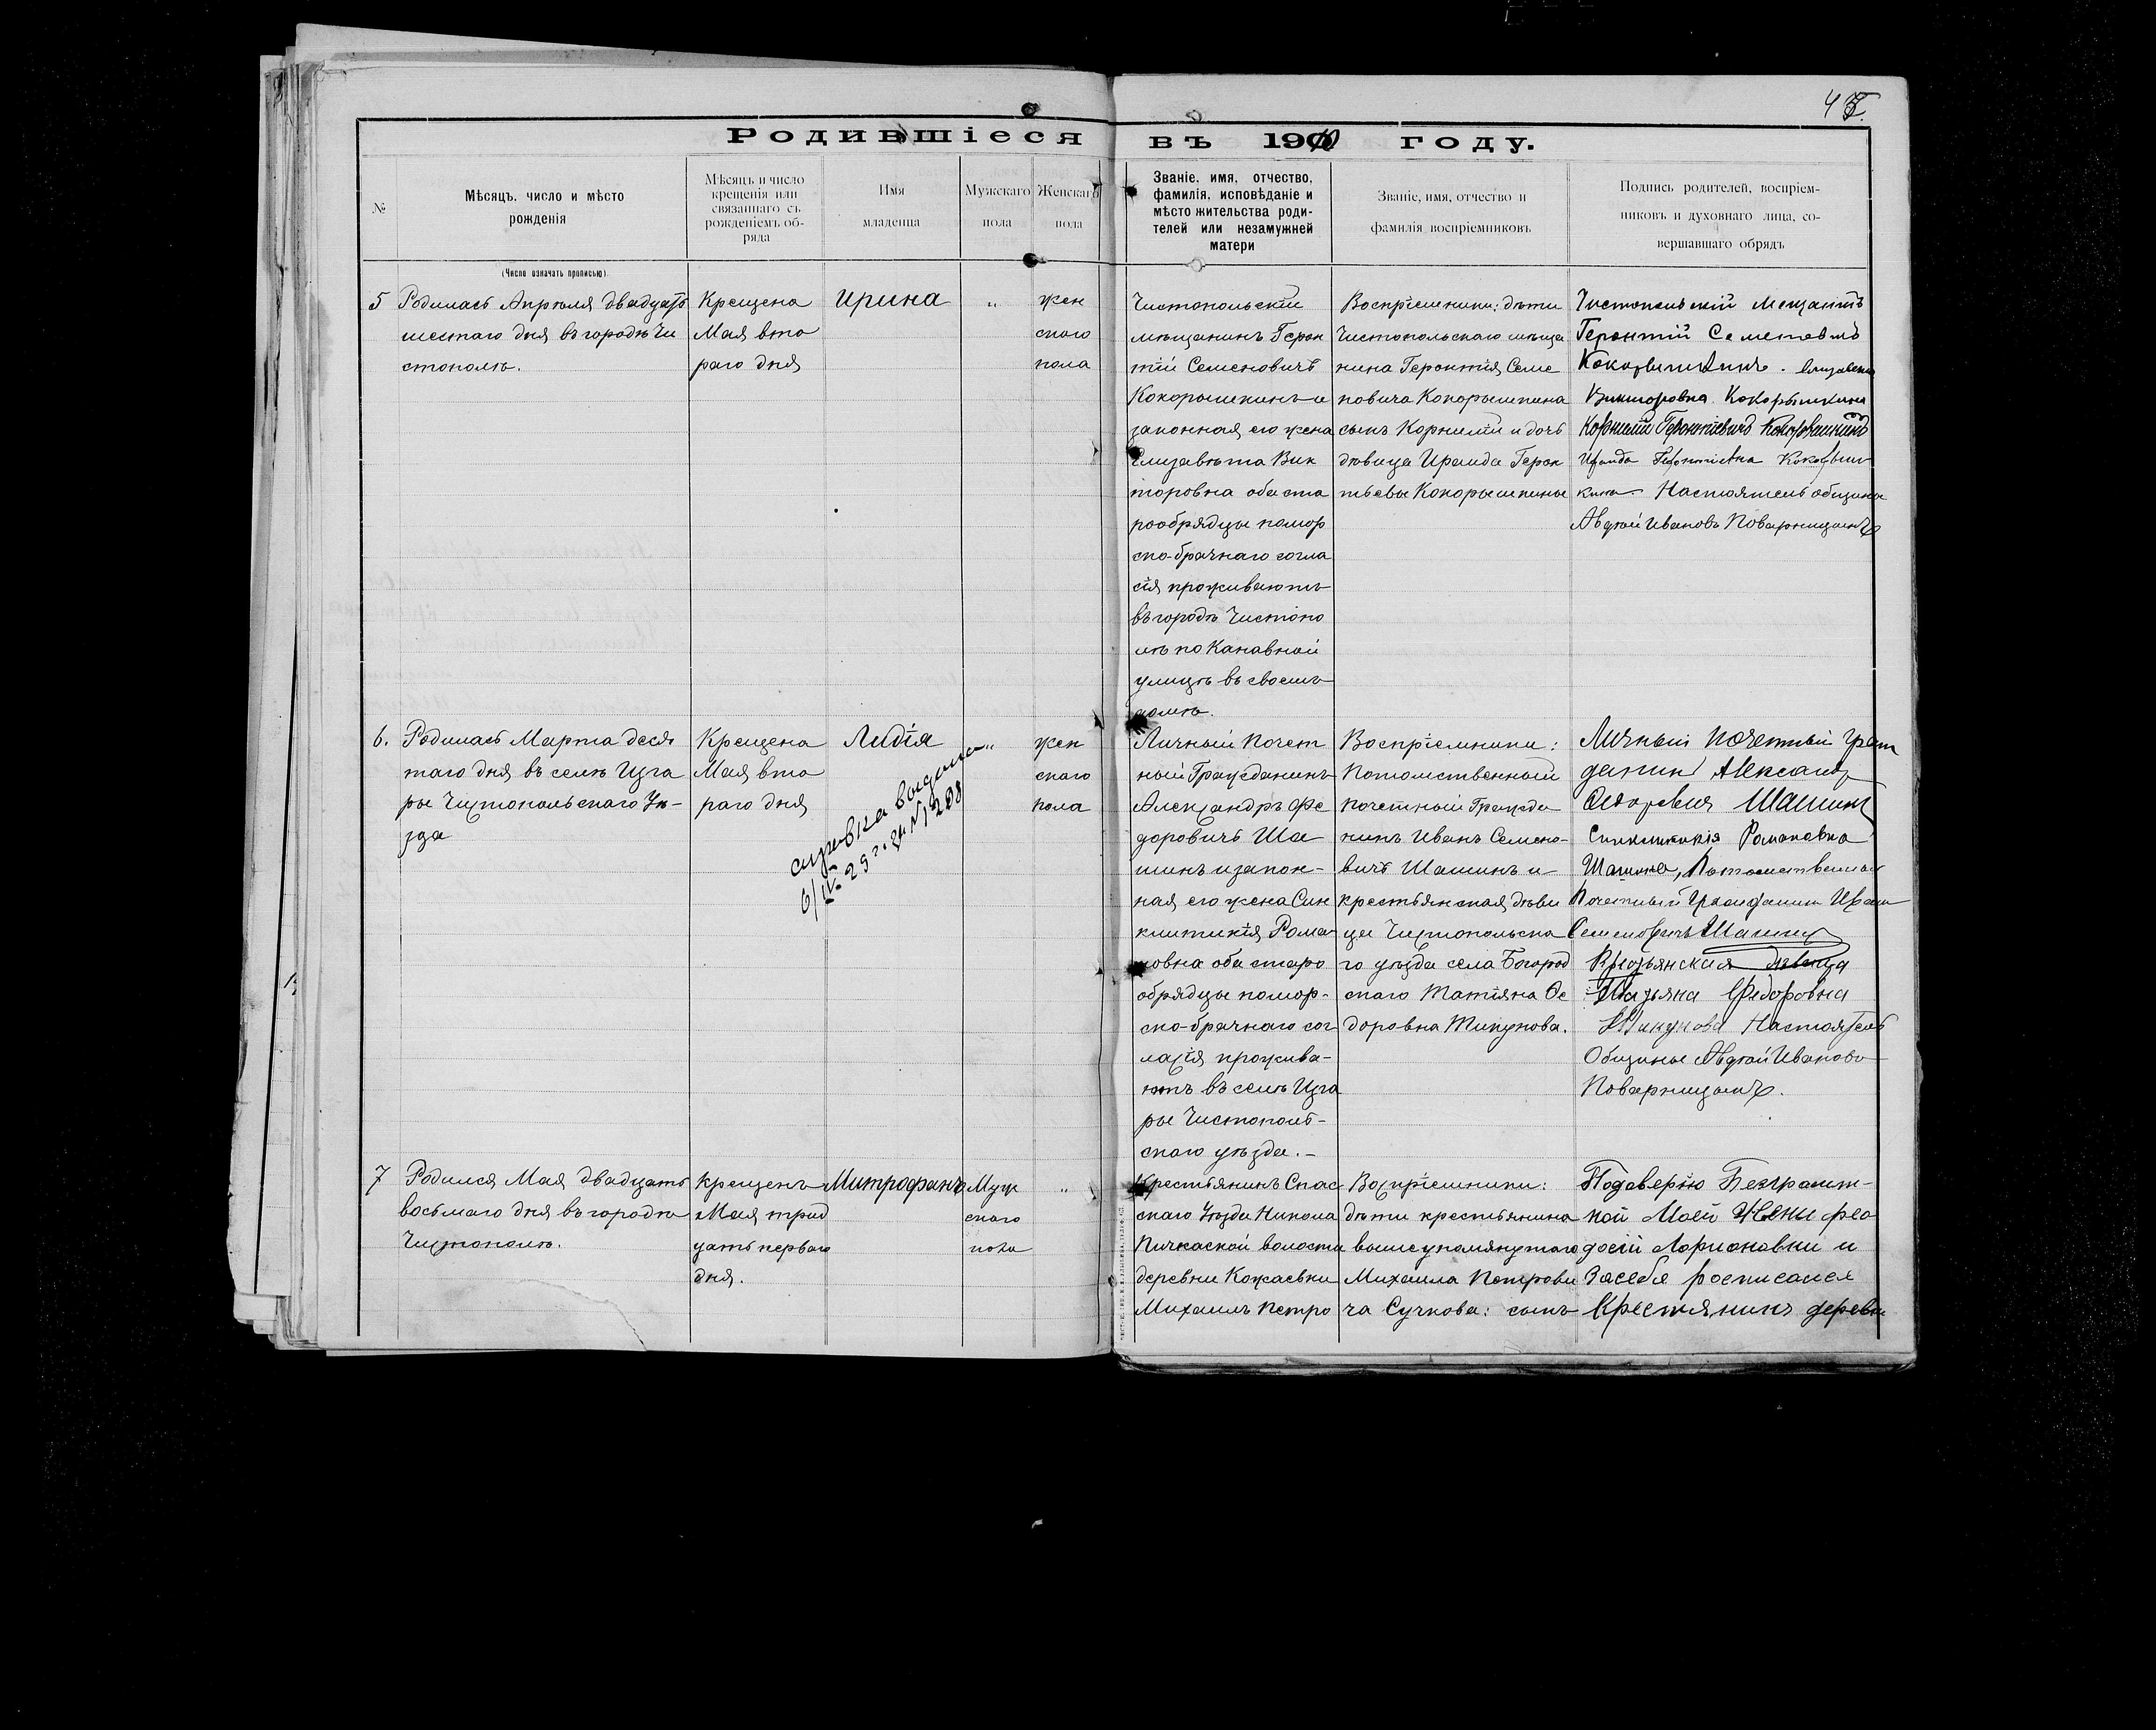 4
Родившіеся въ 1910 году.
№
Мѣсяцъ, число и мѣсто
рожденія
(Число означать прописью)
Мѣсяцъ и число
крещенія или
связаннаго съ
рожденіемъ об-
ряда
Имя
младенца
Мужскаго
пола
Женскаго
пола
Званіе, имя, отчество,
фамилія, исповѣданіе и
мѣсто жительства роди-
телей или незамужней
матери
Званіе, имя, отчество и
фамилія воспріемниковъ
Подпись родителей, воспріем-
никовъ и духовнаго лица, со-
вершавшаго обрядъ
5
Родилась Апрѣля двадцать
шестаго дня въ городѣ Чи
стополѣ.
Крещена
Мая вто
раго дня
Ирина
"
жен
скаго
пола
Чистопольскій
мѣщанинъ Герон
тій Семеновичъ
Кокорышкинъ и
законная его жена
Елизавѣта Вик
торовна оба ста
рообрядцы помор
ско-брачнаго согла
сія проживаютъ
въ городѣ Чистопо
лѣ по Канавной
улицѣ въ своемъ
домѣ.
Воспріемники: дѣти
Чистопольскаго мѣща
нина Геронтія Семе
новича Кокорышкина
сынъ Корнилій и дочь
дѣвица Ираида Герон
тьевы Кокорышкины
Чистопольскій мещанинъ
Геронтій Семеновичъ
Кокорышкинъ. Елизавета
Викторовна Кокорышкина
Корнилій Геронтіевичъ Кокорышкинъ
Ираида Геронтіевна Кокорыш
кина Настоятель общины
Авдѣй Ивановъ Поварницынъ
6.
Родилась Марта деся
таго дня въ селѣ Изга
ры Чистопольскаго Уѣ-
зда
Крещена
Мая вто
раго дня
Лидія
справка выдана
6/IV 29 г. за № 1208
"
жен
скаго
пола
Личный Почет
ный Гражданинъ
Александръ Фе
доровичъ Ша
шинъ и закон-
ная его жена Син
клитикія Рома-
новна оба старо
обрядцы помор-
ско-брачнаго сог
ласія прожива-
ютъ въ селѣ Изга
ры Чистополь-
скаго уѣзда.-
Воспріемники:
Потомственный
почетный Гражда
нинъ Иванъ Семено-
вичъ Шашинъ и
крестьянская дѣви
ца Чистопольска
го уѣзда села Богород
скаго Татіяна Ѳе
доровна Тикунова.
Личный почетный граж
данин Александр
Ѳедорович Шашин
Синклитикія Романовна
Шашина, Потомственный
Почетный Гражданин Иван
Семенович Шашин
Крестьянская дѣвица
Татьяна Федоровна
Тикунова Настоятель
Общины Авдѣй Ивановъ
Поварницынъ.
7
Родился Мая двадцать
восьмаго дня въ городѣ
Чистополѣ.
Крещенъ
Мая трид
цать перваго
дня.
Митрофанъ
Муж
скаго
пола
"
Крестьянинъ Спас
скаго Уѣзда Никола
Пичкаской волости
деревни Кожаевки
Михаилъ Петро
Воспріемники:
дѣти крестьянина
вышеупомянутаго
Михаила Петрови
ча Сучкова: сынъ
Подоверію Безграмот-
ной Моей Жены Фео
досіи Ларионовны и
Засебя росписался
Крестянинъ деревни